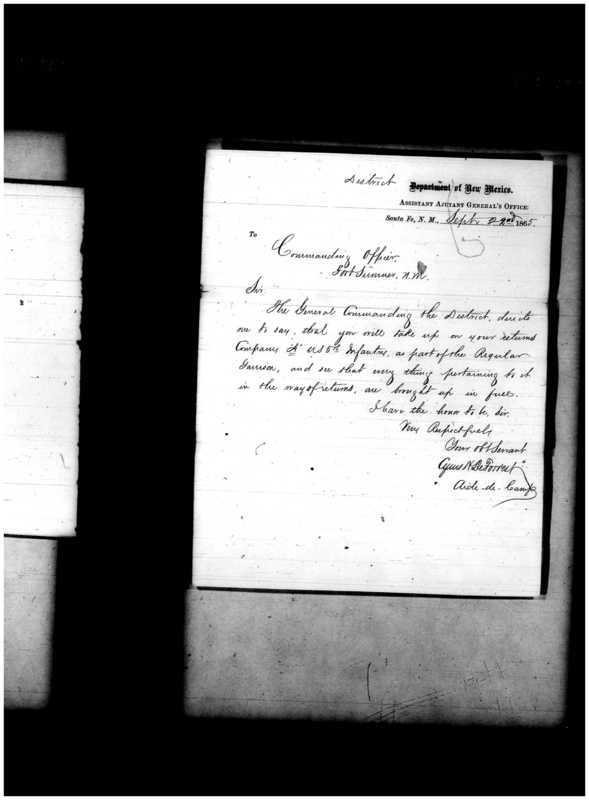 District Department of New Mexico.
ASSISTANT AJUTANT GENERAL'S OFFICE.
Santa Fe, N. M., Sept. 22nd 1865.
To
Commanding Officer,
Fort Sumner, N.M.
Sir
The General Commanding the District, directs
me to say, that you will take up on your returns
Company "A" U.S 5th Infantry, as part of the Regular
Garrison, and see that every thing pertaining to it
in the way of returns, are brought up in full.
I have the honor to be, Sir,
Very Respectfully
Your obt Servant
Cyrus H DeForrest
Aide-de-Camp